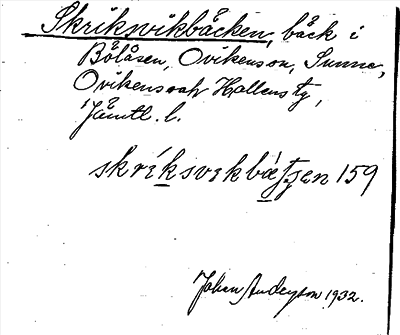 Skriksvikbäcken, bäck i
Bölåsen, Ovikens sn, Sunne,
Ovikens och Hallens tg,
Jämtl. l.
skríksvɩkbǽtʃen 159
Johan Anderson 1932.